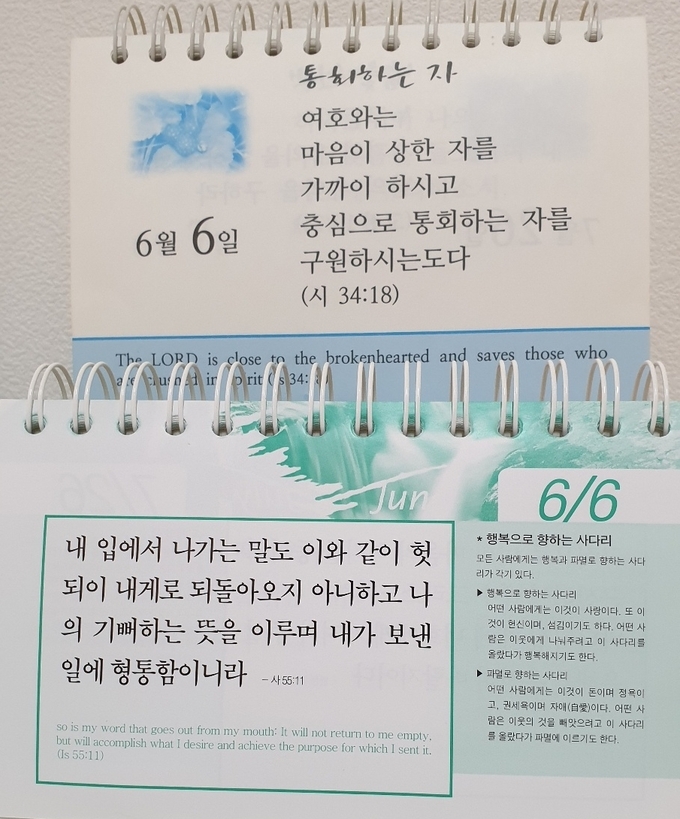 통회하는 자
여호와는
마음이 상한 자를
가까이 하시고
충심으로 통회하는 자를
구원하시는도다
(시 34:18)
6월 6일
The LORD is close to the brokenhearted and saves those who
are crushed in spirit
June
6/6
내 입에서 나가는 말도 이와 같이 헛
되이 내게로 되돌아오지 아니하고 나
의 기뻐하는 뜻을 이루며 내가 보낸
일에 형통함이니라 – 사 55:11
so is my word that goes out from my mouth: It will not return to me empty,
but will accomplish what I desire and achieve the purpose for which I sent it.
(Is 55:11)
★ 행복으로 향하는 사다리
모든 사람에게는 행복과 파멸로 향하는 사다
리가 각기 있다.
▶ 행복으로 향하는 사다리
어떤 사람에게는 이것이 사랑이다. 또 이
것이 헌신이며, 섬김이기도 하다. 어떤 사
람은 이웃에게 나눠주려고 이 사다리를
올랐다가 행복해지기도 한다.
▶ 파멸로 향하는 사다리
어떤 사람에게는 이것이 돈이며 정욕이
고, 권세욕이며 자애(自愛)이다. 어떤 사
람은 이웃의 것을 빼앗으려고 이 사다리
를 올랐다가 파멸에 이르기도 한다.